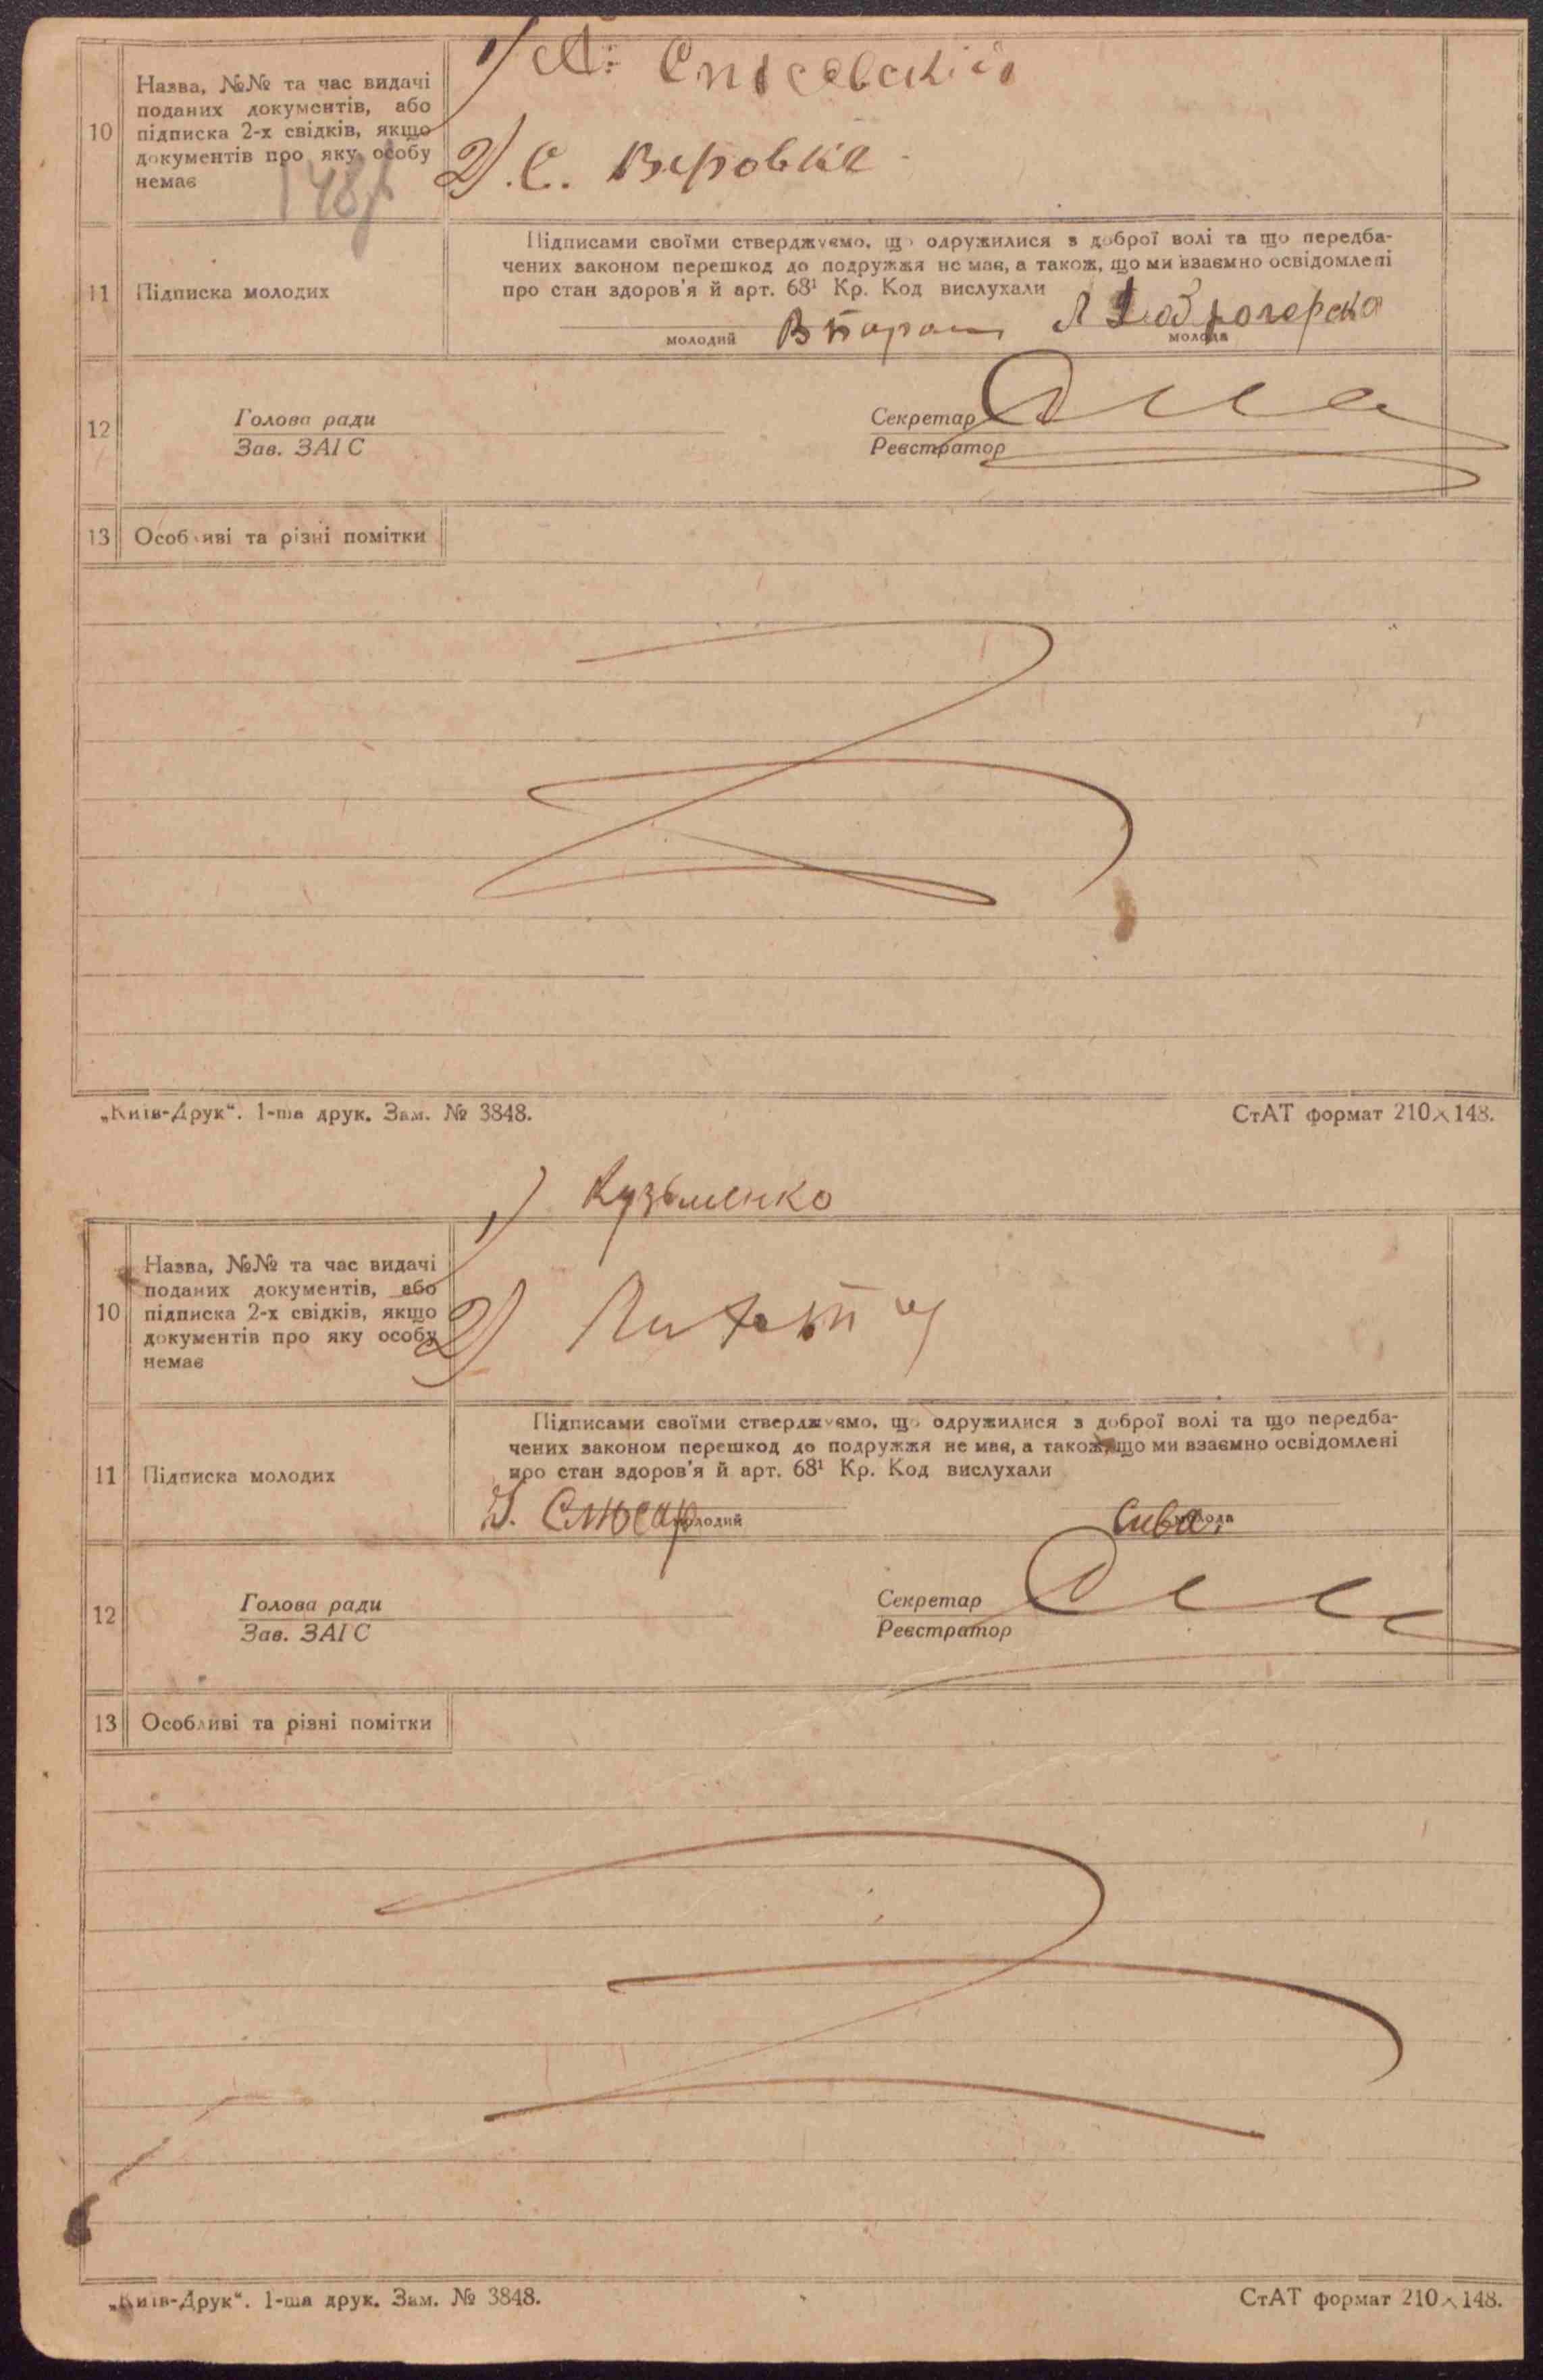 1) А. Списовский
10 Назва, №№ та час видачі
поданих документів, або
підписка 2-х свідків, якщо
документів про яку особу
немає
2) С. Веровка
148
Підписами своїми стверджуємо, що одружилися з доброї волі та що передба-
чених законом перешкод до подружжя не має, а також, що ми взаємно освідомлені
про стан здоров'я й арт. 68¹ Кр. Код вислухали
11 Підписка молодих
молодий В молода
12 Голова ради Секретар
Зав. ЗАГС Реєстратор
13 Особливі та різні помітки
„Київ-Друк“. 1-ша друк. Зам. № 3848. СтАТ формат 210×148.
1) Кузьменко
10 Назва, №№ та час видачі
поданих документів, або
підписка 2-х свідків, якщо
документів про яку особу
немає
2)
Підписами своїми стверджуємо, що одружилися з доброї волі та що передба-
чених законом перешкод до подружжя не має, а також, що ми взаємно освідомлені
про стан здоров'я й арт. 68¹ Кр. Код вислухали
11 Підписка молодих
Слюсар молодий Сива молода
12 Голова ради Секретар
Зав. ЗАГС Реєстратор
13 Особливі та різні помітки
„Київ-Друк“. 1-ша друк. Зам. № 3848. СтАТ формат 210×148.